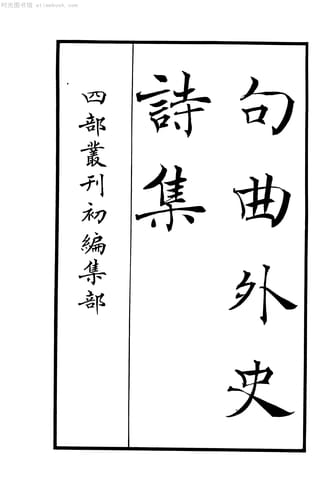 时光图书馆
句曲外史
詩集
四部叢刊初編集部